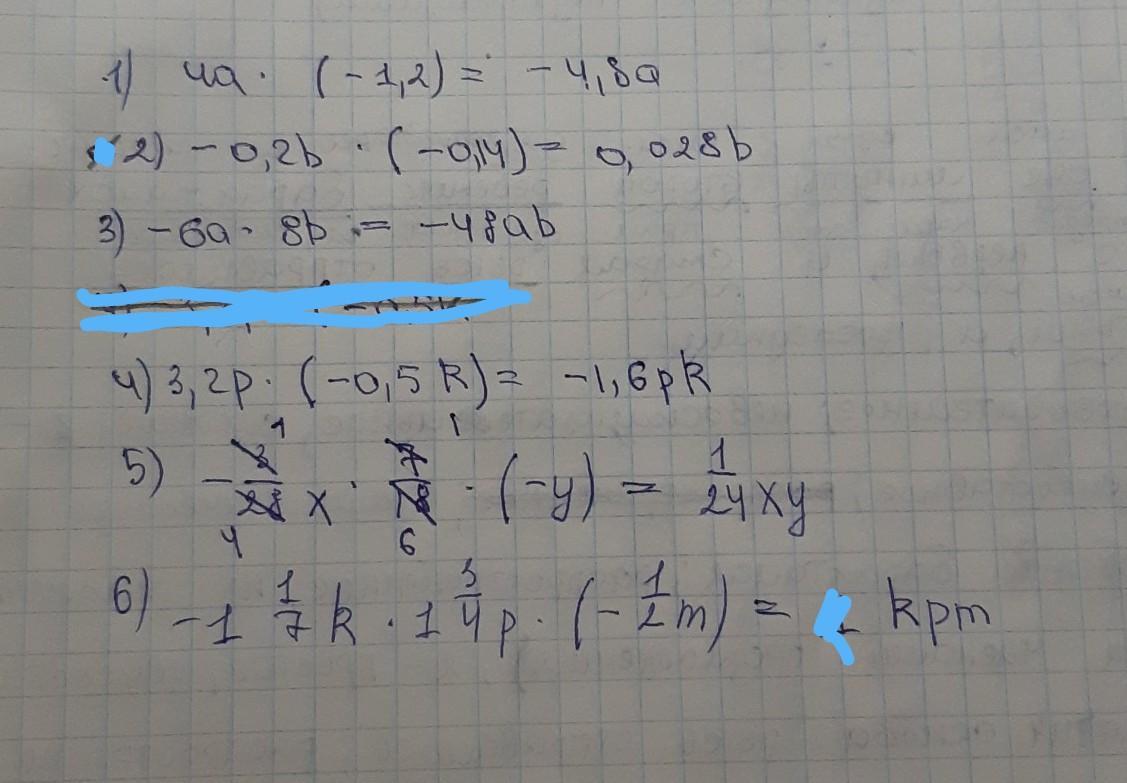 1) 4a · (-1,2) = -4,8a
2) -0,2b · (-0,14) = 0,028b
3) -6a · 8b = -48ab
4) 3,2p · (-0,5k) = -1,6pk
5) -3/28 x · 7/18 · (-y) = 1/24 xy
6) -1 1/7 k · 1 3/4 p · (-1/2 m) = kpm